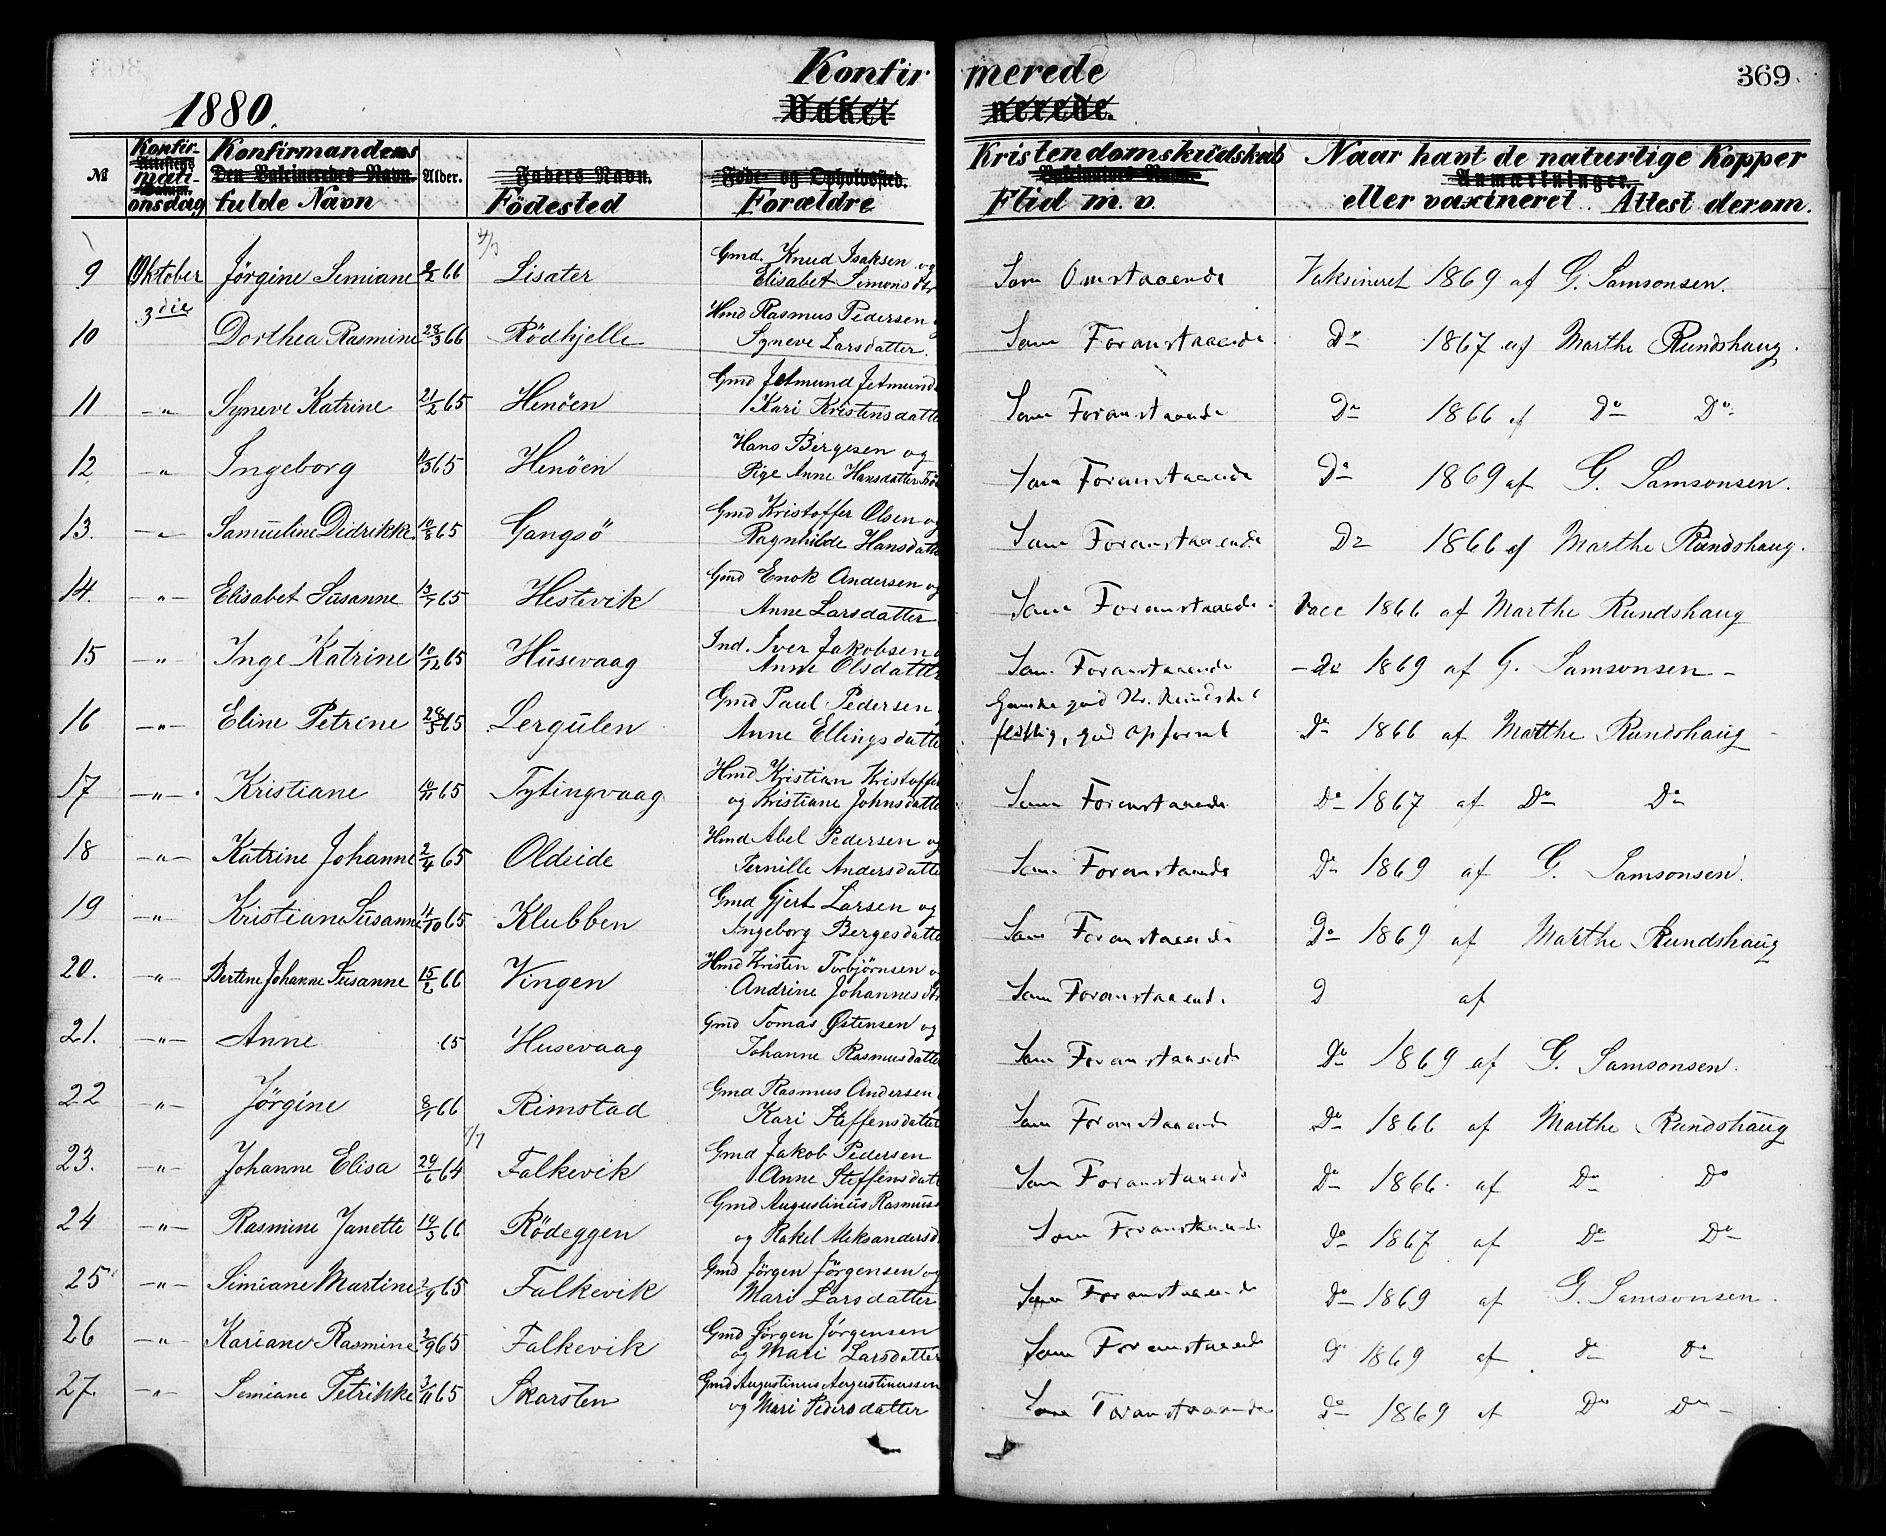 Konfirmerede
369
1880.
Vakcinerede.
№ Konfirmationsdag Konfirmandens fulde Navn Alder. Födested Forældre Kristendomskundskab Flid m. v. Naar havt de naturlige Kopper eller vaxineret. Attest derom.
Den Vakcineredes Navn. Faders Navn. Føde- og Opholdssted. Vakcinators Navn. Anmærkninger.
9 Oktober 3die Jörgine Simiane 66 Lisæter Gmd. Knud Isaksen og Elisabet Simonsdtr Som Omstaaende Vaksineret 1869 af G. Samsonsen.
10 Dorthea Rasmine 28/3 66 Rödhjelle Hmd Rasmus Pedersen Syneve Larsdatter. Som Foranstaaende Do 1867 af Marthe Rundshaug.
11 -"- Syneve Katrine 21/2 65 Henöen Gmd Jetmund Jetmunds Kari Kristensdatte Som Foranstaaende Do 1866 af Do Do
12 -"- Ingeborg 65 Henöen Hans Børgesen og Pige Anne Hansdatter Som Foranstaaende Do 1869 af G. Samsonsen.
13. -"- Samueline Didrikke 10/8 65 Gangsö Gmd Kristoffer Olsen og Ragnhilde Hansdatte Som Foranstaaende Do 1866 af Marthe Rundshaug.
14. -"- Elisabet Susanne 13/7 65 Hestevik Gmd Enok Andersen og Anne Larsdatter Som Foranstaaende Vacc 1866 af Marthe Rundshaug
15 -"- Inge Katrine 10/12 65 Husevaag Ind. Iver Jakobsen Anne Olsdatte Som Foranstaaende -Do 1869 af G. Samsonsen -
16 -"- Eline Petrine 65 Lergulen Gmd Paul Pedersen Anne Ellingsdatte Ganske god Kr. Kundsk flittig, god Opførsel Do 1866 af Marthe Rundshaug -
17 -"- Kristiane 10/11 65 Tytingvaag Hmd Kristian Kristoffe og Kristiane Johnsdatte Som Foranstaaende Do 1867 af Do Do
18 -"- Katrine Johanne 2/4 65 Oldeide Hmd Abel Pedersen og Pernille Andersdatte Som Foranstaaende Do 1869 af G. Samsonsen.
19 -"- Kristiane Susanne 11/10 65 Klubben Gmd Gjert Larsen og Ingeborg Børgesdatte Som Foranstaaende Do 1869 af Marthe Rundshaug
20. -"- Bertine Johanne Susanne 66 Vingen Hmd Kristen Torbjørnsen og Andrine Johannesdtr Som Foranstaaende D af
21. -"- Anne 65 Husevaag Gmd Tomas Østensen og Johanne Rasmusdatte Som Foranstaaende Do 1869 af G. Samsonsen.
22 -"- Jörgine 8/1 66 Rimstad Gmd Rasmus Andersen Kari Steffensdatte Som Foranstaaende Do 1866 af Marthe Rundshaug
23. -"- Johanne Elisa 29/6 64 Falkevik Gmd Jakob Pedersen Anne Steffensdatt Som Foranstaaende Do 1866. af Do Do
24 -"- Rasmine Janette 19/3 66 Rödeggen Gmd Augustinus Rasmuss og Rakel Aleksandersd Som Foranstaaende Do 1867 af Do Do
25 -"- Simiane Martine 2/9 65 Falkevik Gmd Jörgen Jörgensen og Mari Larsdatter Som Foranstaaende Do 1869 af G. Samsonsen.
26 -"- Kariane Rasmine 2/9 65 Falkevik Gmd Jörgen Jörgensen og Mari Larsdatter Som Foranstaaende D 1869 af Do Do
27. -"- Simiane Petrikke 3/11 65 Skarsten Gmd Augustinus Augustinussen og Mari Pedersdatter Som Foranstaaende Do 1869 af Do Do -